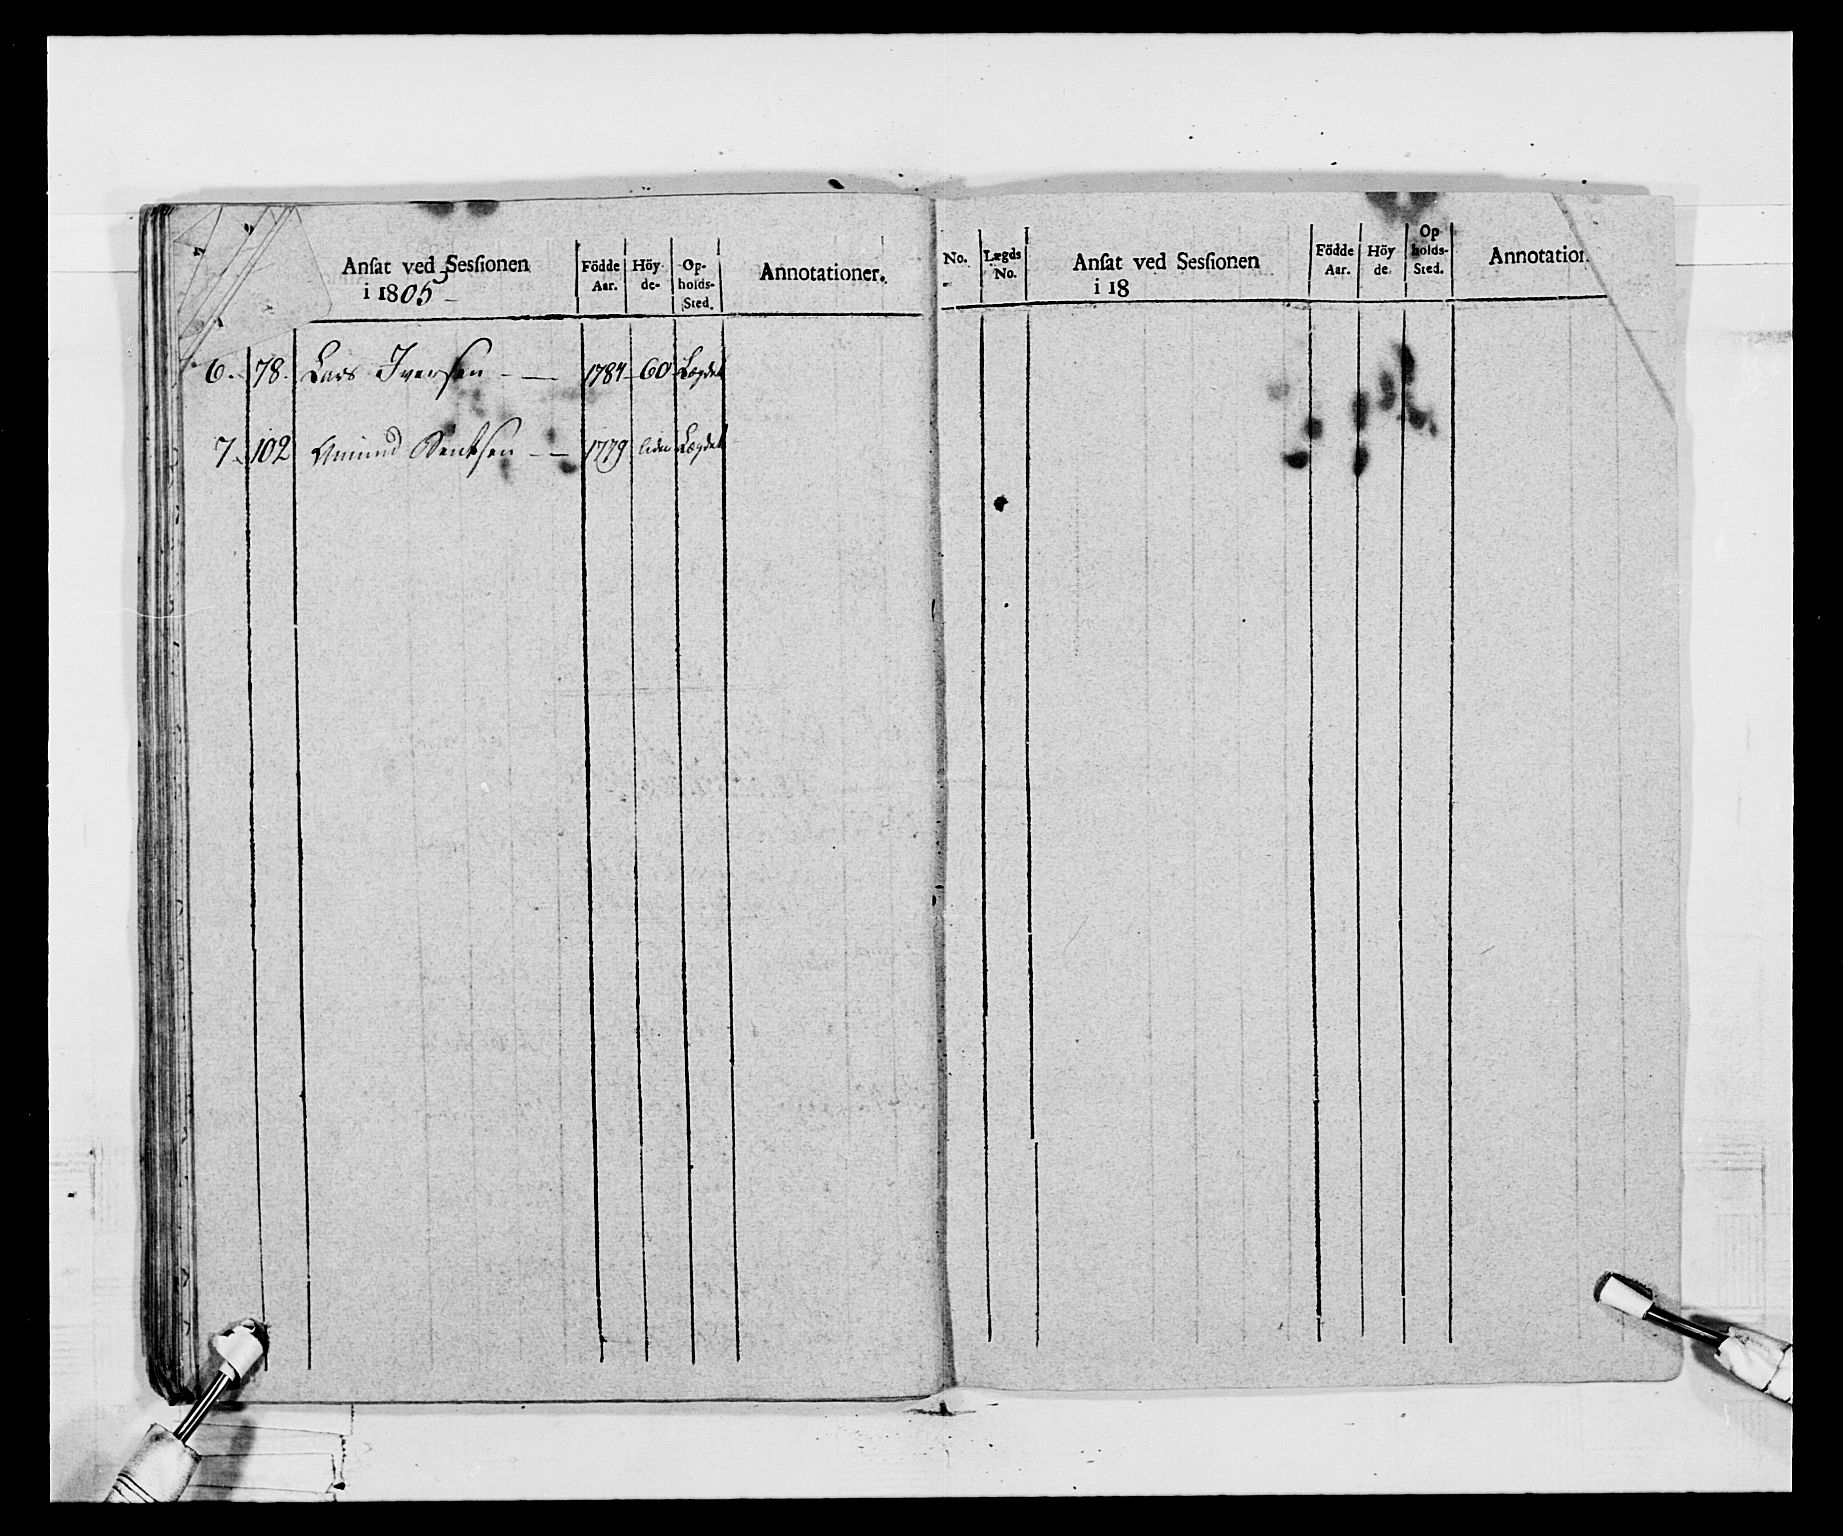 Ansat ved Sessionen
i 1805
Födde Aar.
Höy de-
Op-holds-Sted.
Annotationer.
6. 78. Lars Iversen 1784 60 Lægdet
7. 102 Amund Bentsen 1779 liden Lægdet
No.
Lægds No.
Ansat ved Sessionen
i 18
Födde Aar.
Höy de.
Op holds-Sted.
Annotation